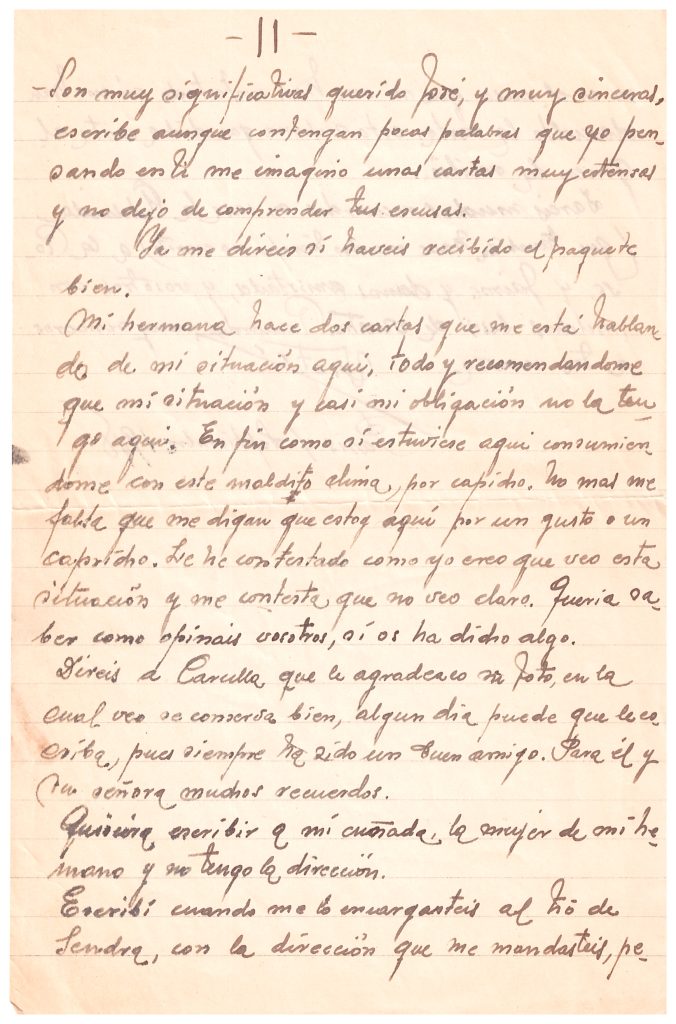 - 11 -
-Son muy significativas querido José, y muy sinceras,
escribe aunque contengan pocas palabras que yo pen-
sando en ti me imagino unas cartas muy estensas
y no dejo de comprender tus escusas.
Ya me direis si haveis recibido el paquete
bien.
Mi hermana hace dos cartas que me está hablan
do, de mi situación aquí, todo y recomendandome
que mi situación y casi mi obligación no la ten-
go aqui. En fin como si estuviese aqui consumien-
dome con este maldito clima, por capicho. No mas me
falta que me digan que estoy aquí por un gusto o un
capricho. Le he contestado como yo creo que veo esta
situación y me contesta que no veo claro. Queria sa-
ber como opinais vosotros, si os ha dicho algo.
Direis a Carulla que le agradezco su foto, en la
cual veo se conserva bien, algun dia puede que le es-
criba, pues siempre ha sido un buen amigo. Para él y
su señora muchos recuerdos.
Quisiera escribir a mi cuñada, la mujer de mi he-
mano y no tengo la dirección.
Escribí cuando me lo encargasteis al hº de
Sendra, con la dirección que me mandasteis, pe-